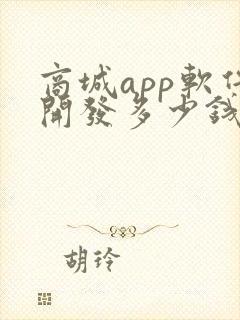 商城app軟件
開發多少錢
胡玲